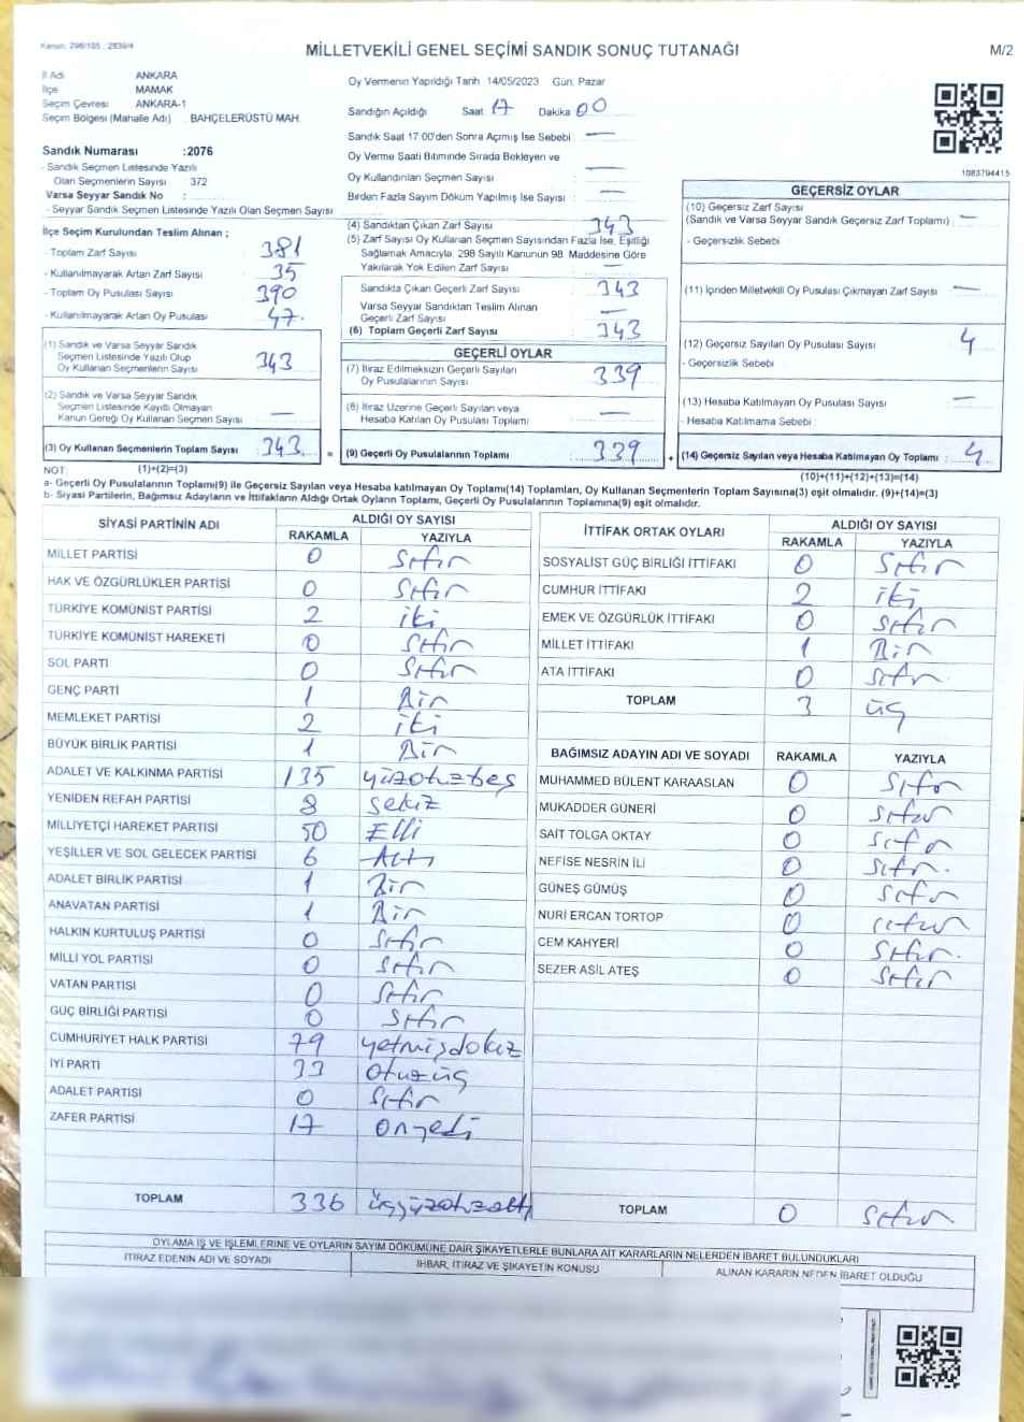 Kanun: 298/105 ; 2839/4
MİLLETVEKİLİ GENEL SEÇİMİ SANDIK SONUÇ TUTANAĞI
M/2
İl Adı ANKARA
İlçe MAMAK
Seçim Çevresi ANKARA-1
Seçim Bölgesi (Mahalle Adı) : BAHÇELERÜSTÜ MAH.
Sandık Numarası :2076
- Sandık Seçmen Listesinde Yazılı
Olan Seçmenlerin Sayısı : 372
Varsa Seyyar Sandık No :
- Seyyar Sandık Seçmen Listesinde Yazılı Olan Seçmen Sayısı :
İlçe Seçim Kurulundan Teslim Alınan ;
- Toplam Zarf Sayısı : 381
- Kullanılmayarak Artan Zarf Sayısı : 35
- Toplam Oy Pusulası Sayısı : 390
- Kullanılmayarak Artan Oy Pusulası : 47
(1) Sandık ve Varsa Seyyar Sandık
Seçmen Listesinde Yazılı Olup
Oy Kullanan Seçmenlerin Sayısı : 343
(2) Sandık ve Varsa Seyyar Sandık
Seçmen Listesinde Kayıtlı Olmayan
Kanun Gereği Oy Kullanan Seçmen Sayısı : —
(3) Oy Kullanan Seçmenlerin Toplam Sayısı : 343
Oy Vermenin Yapıldığı Tarih 14/05/2023 Gün: Pazar
Sandığın Açıldığı Saat 17 Dakika 00
Sandık Saat 17.00'den Sonra Açılmış İse Sebebi : —
Oy Verme Saati Bitiminde Sırada Bekleyen ve
Oy Kullandırılan Seçmen Sayısı : —
Birden Fazla Sayım Döküm Yapılmış İse Sayısı : —
(4) Sandıktan Çıkan Zarf Sayısı : 343
(5) Zarf Sayısı Oy Kullanan Seçmen Sayısından Fazla İse, Eşitliği
Sağlamak Amacıyla, 298 Sayılı Kanunun 98. Maddesine Göre
Yakılarak Yok Edilen Zarf Sayısı : —
Sandıkta Çıkan Geçerli Zarf Sayısı : 343
Varsa Seyyar Sandıktan Teslim Alınan
Geçerli Zarf Sayısı : —
(6) Toplam Geçerli Zarf Sayısı : 343
GEÇERLİ OYLAR
(7) İtiraz Edilmeksizin Geçerli Sayılan
Oy Pusulalarının Sayısı : 339
(8) İtiraz Üzerine Geçerli Sayılan veya
Hesaba Katılan Oy Pusulası Toplamı : —
= (9) Geçerli Oy Pusulalarının Toplamı : 339
1083794415
GEÇERSİZ OYLAR
(10) Geçersiz Zarf Sayısı
(Sandık ve Varsa Seyyar Sandık Geçersiz Zarf Toplamı) : —
- Geçersizlik Sebebi :
(11) İçinden Milletvekili Oy Pusulası Çıkmayan Zarf Sayısı : —
(12) Geçersiz Sayılan Oy Pusulası Sayısı : 4
- Geçersizlik Sebebi :
(13) Hesaba Katılmayan Oy Pusulası Sayısı : —
- Hesaba Katılmama Sebebi :
+ (14) Geçersiz Sayılan veya Hesaba Katılmayan Oy Toplamı : 4
NOT: (1)+(2)=(3) (10)+(11)+(12)+(13)=(14)
a- Geçerli Oy Pusulalarının Toplamı(9) ile Geçersiz Sayılan veya Hesaba katılmayan Oy Toplamı(14) Toplamları, Oy Kullanan Seçmenlerin Toplam Sayısına(3) eşit olmalıdır. (9)+(14)=(3)
b- Siyasi Partilerin, Bağımsız Adayların ve İttifakların Aldığı Ortak Oyların Toplamı, Geçerli Oy Pusulalarının Toplamına(9) eşit olmalıdır.
SİYASİ PARTİNİN ADI ALDIĞI OY SAYISI
RAKAMLA YAZIYLA
MİLLET PARTİSİ 0 Sıfır
HAK VE ÖZGÜRLÜKLER PARTİSİ 0 Sıfır
TÜRKİYE KOMÜNİST PARTİSİ 2 iki
TÜRKİYE KOMÜNİST HAREKETİ 0 Sıfır
SOL PARTİ 0 Sıfır
GENÇ PARTİ 1 Bir
MEMLEKET PARTİSİ 2 iki
BÜYÜK BİRLİK PARTİSİ 1 Bir
ADALET VE KALKINMA PARTİSİ 135 yüzotuzbeş
YENİDEN REFAH PARTİSİ 8 sekiz
MİLLİYETÇİ HAREKET PARTİSİ 50 Elli
YEŞİLLER VE SOL GELECEK PARTİSİ 6 Altı
ADALET BİRLİK PARTİSİ 1 Bir
ANAVATAN PARTİSİ 1 Bir
HALKIN KURTULUŞ PARTİSİ 0 Sıfır
MİLLİ YOL PARTİSİ 0 Sıfır
VATAN PARTİSİ 0 Sıfır
GÜÇ BİRLİĞİ PARTİSİ 0 Sıfır
CUMHURİYET HALK PARTİSİ 79 yetmişdokuz
İYİ PARTİ 33 otuzüç
ADALET PARTİSİ 0 Sıfır
ZAFER PARTİSİ 17 onyedi
TOPLAM 336 üçyüzotuzaltı
İTTİFAK ORTAK OYLARI ALDIĞI OY SAYISI
RAKAMLA YAZIYLA
SOSYALİST GÜÇ BİRLİĞİ İTTİFAKI 0 Sıfır
CUMHUR İTTİFAKI 2 iki
EMEK VE ÖZGÜRLÜK İTTİFAKI 0 Sıfır
MİLLET İTTİFAKI 1 Bir
ATA İTTİFAKI 0 Sıfır
TOPLAM 3 üç
BAĞIMSIZ ADAYIN ADI VE SOYADI RAKAMLA YAZIYLA
MUHAMMED BÜLENT KARAASLAN 0 Sıfır
MUKADDER GÜNERİ 0 Sıfır
SAİT TOLGA OKTAY 0 Sıfır
NEFİSE NESRİN İLİ 0 Sıfır
GÜNEŞ GÜMÜŞ 0 Sıfır
NURİ ERCAN TORTOP 0 sıfır
CEM KAHYERİ 0 Sıfır
SEZER ASİL ATEŞ 0 Sıfır
TOPLAM 0 Sıfır
OYLAMA İŞ VE İŞLEMLERİNE VE OYLARIN SAYIM DÖKÜMÜNE DAİR ŞİKAYETLERLE BUNLARA AİT KARARLARIN NELERDEN İBARET BULUNDUKLARI
İTİRAZ EDENİN ADI VE SOYADI İHBAR, İTİRAZ VE ŞİKAYETİN KONUSU ALINAN KARARIN NEDEN İBARET OLDUĞU